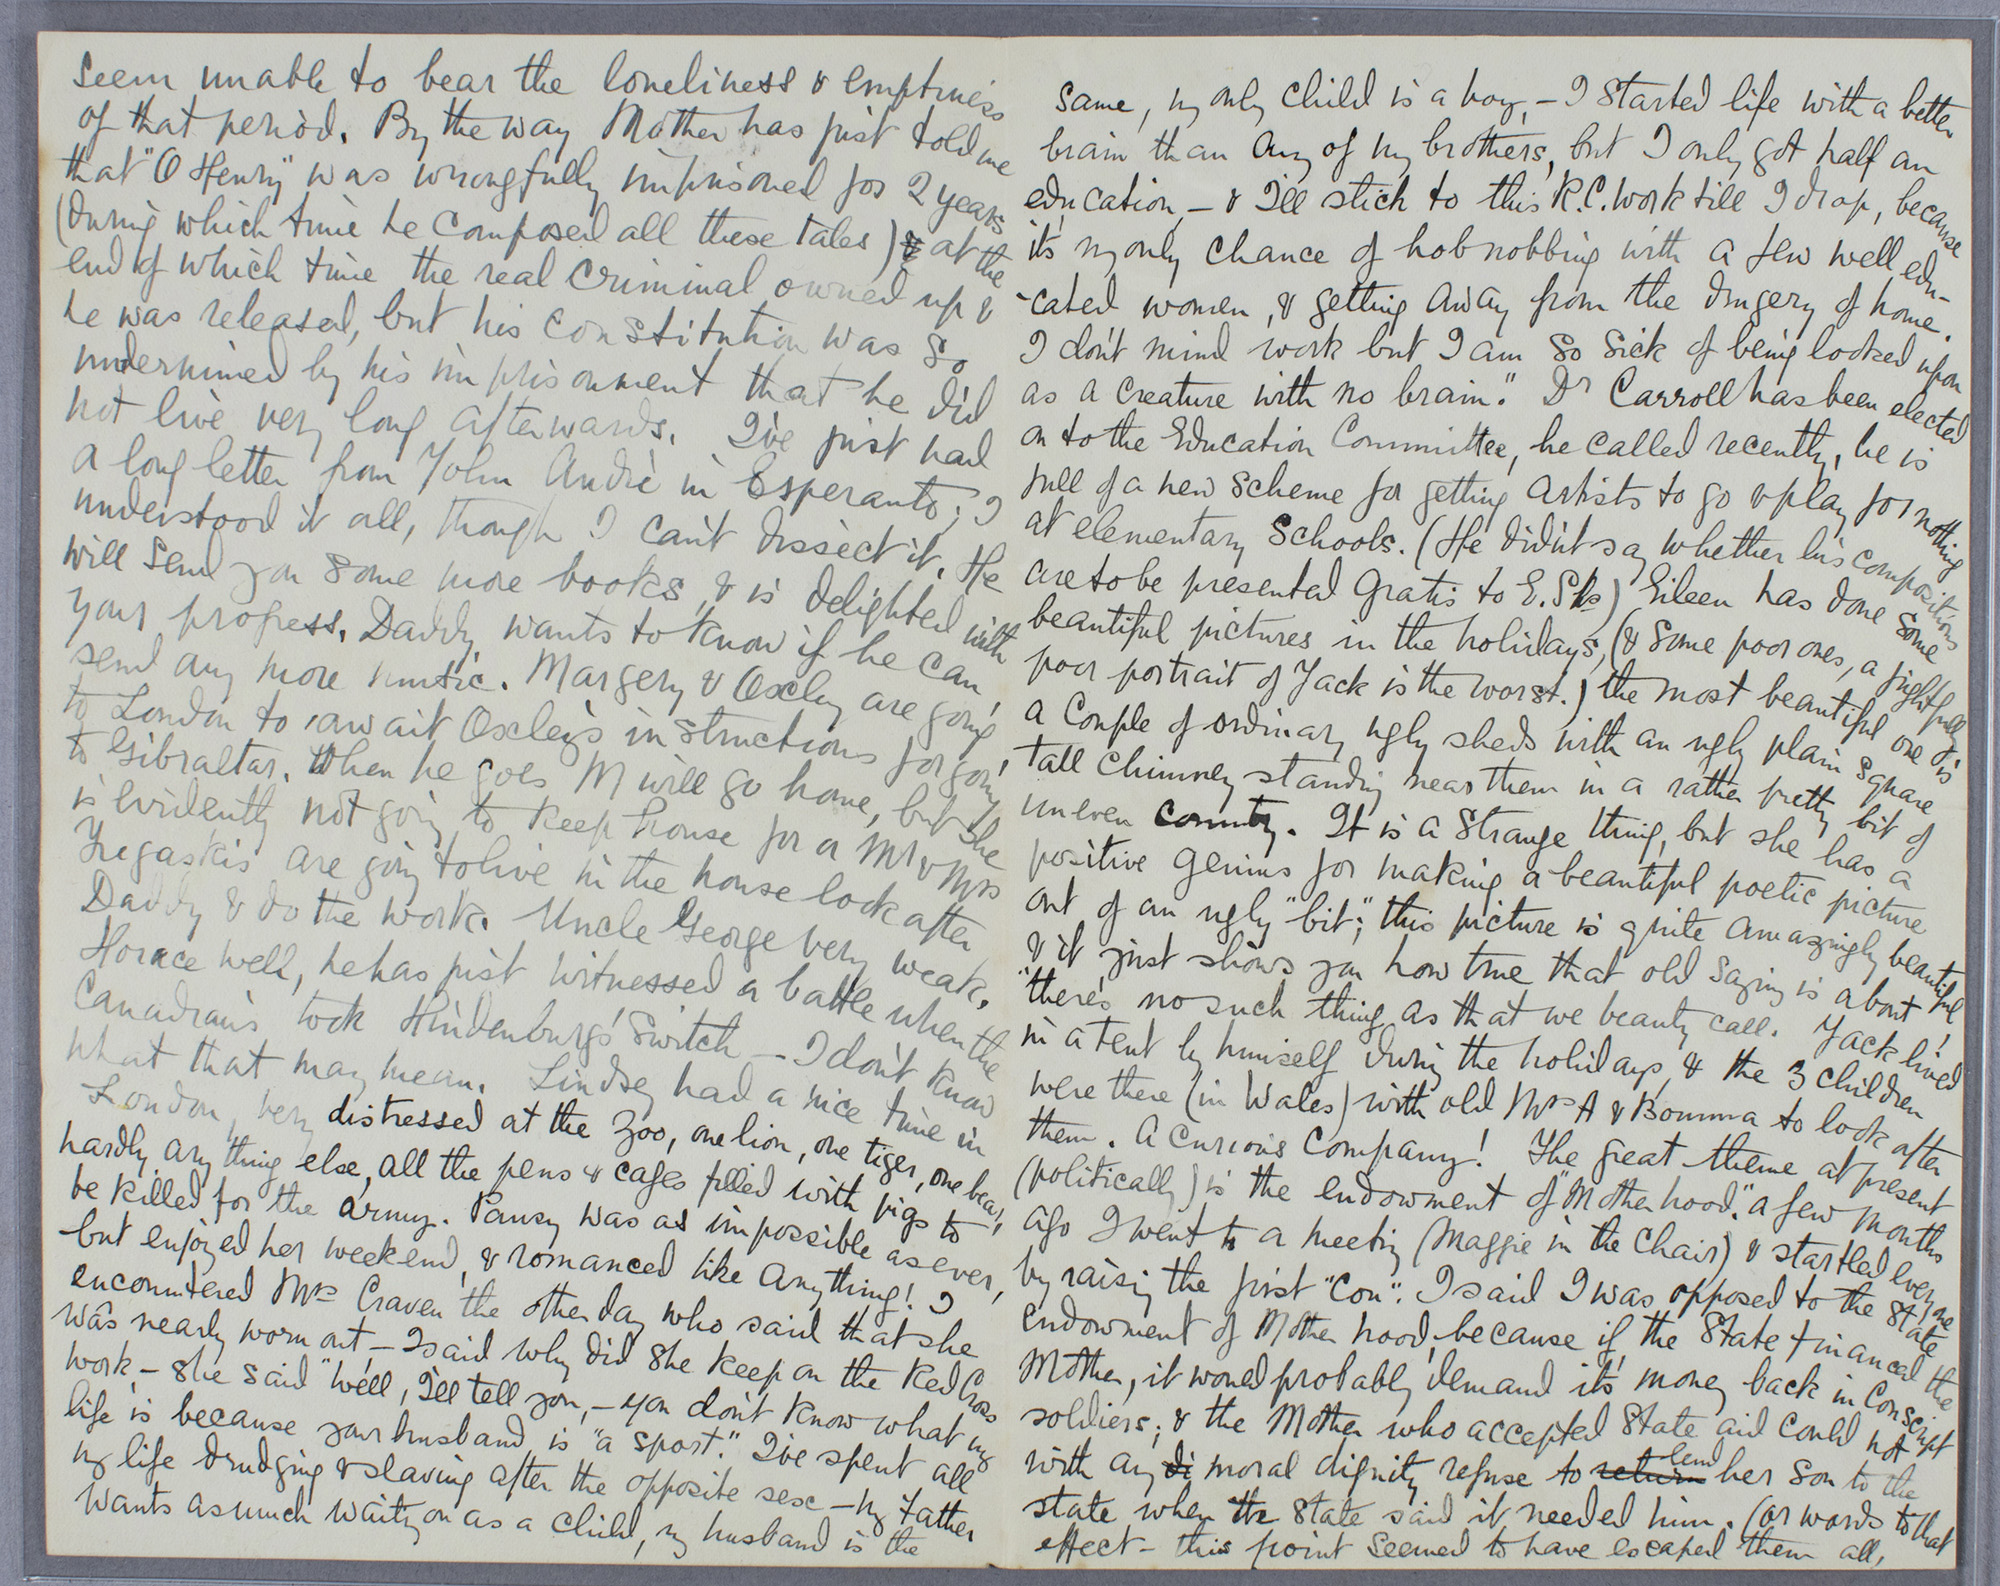 seem unable to bear the loneliness & emptiness
of that period. By the way Mother has just told me
that "O Henry" was wrongfully imprisoned for 2 years
(during which time he composed all these tales) & at the
end of which time the real criminal owned up &
he was released, but his constitution was so
undermined by his imprisonment that he did
not live very long afterwards. I've just had
a long letter from John André in Esperanto; I
understood it all, though I can't dissect it. He
will send you some more books, & is delighted with
your progress. Daddy wants to know if he can
send any more music. Margery & Oxley are going
to London to await Oxley's instructions for going
to Gibraltar. When he goes M will go home, but she
is evidently not going to keep house for a Mr & Mrs
Tregaskis are going to live in the house look after
Daddy & do the work. Uncle George very weak.
Horace well, he has just witnessed a battle when the
Canadians took Hindenburg's Switch – I don't know
what that may mean. Lindsey had a nice time in
London, very distressed at the Zoo, one lion, one tiger, one bear,
hardly any thing else, all the pens & cages filled with pigs to
be killed for the army. Pansy was as impossible as ever,
but enjoyed her weekend, & romanced like anything! I
encountered Mrs Craven the other day who said that she
was nearly worn out – I said why did she keep on the Red Cross
work, – she said "well, I'll tell you, – you don't know what my
life is because your husband is "a sport." I've spent all
my life drudging & slaving after the opposite sex – my Father
wants as much waiting on as a child, my husband is the
same, my only child is a boy, – I started life with a better
brain than any of my brothers, but I only got half an
education, – & I'll stick to this R.C. work till I drop, because
it's my only chance of hobnobbing with a few well edu-
-cated women, & getting away from the drugery of home.
I don't mind work but I am so sick of being looked upon
as a creature with no brain." Dr Carroll has been elected
on to the Education Committee, he called recently, he is
full of a new scheme for getting artists to go & play for nothing
at elementary schools. (He didn't say whether his compositions
are to be presented gratis to E. Sch's) Eileen has done some
beautiful pictures in the holidays, (& some poor ones, a frightfully
poor portrait of Jack is the worst.) the most beautiful one is
a couple of ordinary ugly sheds with an ugly plain square
tall chimney standing near them in a rather pretty bit of
uneven country. It is a strange thing, but she has a
positive genius for making a beautiful poetic picture
out of an ugly "bit"; this picture is quite amazingly beautiful
& it just shows you how true that old saying is about
"there's no such thing as that we beauty call. Jack lived
in a tent by himself during the holidays, & the 3 children
were there (in Wales) with old Mrs A & Bomma to look after
them. A curious company! The great theme at present
(politically) is the endowment of "Motherhood." a few months
ago I went to a meeting (Maggie in the Chair) & startled everyone
by raising the first "Con". I said I was opposed to the State
endowment of Mother hood, because if the State financed the
Mother, it would probably demand it's money back in Conscript
soldiers; & the Mother who accepted State aid could not
with any di moral dignity refuse to return lend her son to the
state when the State said it needed him. (or words to that
effect – this point seemed to have escaped them all,